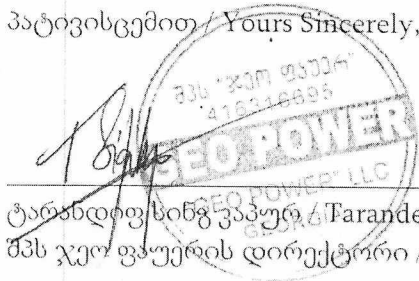 პატივისცემით / Yours Sincerely,
შპს "ჯეო ფაუერ"
GEO POWER
"GEO POWER" LLC
GEORGIA
ტარანდიფ სინგ კაპურ / Tarande
შპს ჯეო ფაუერის დირექტორი /